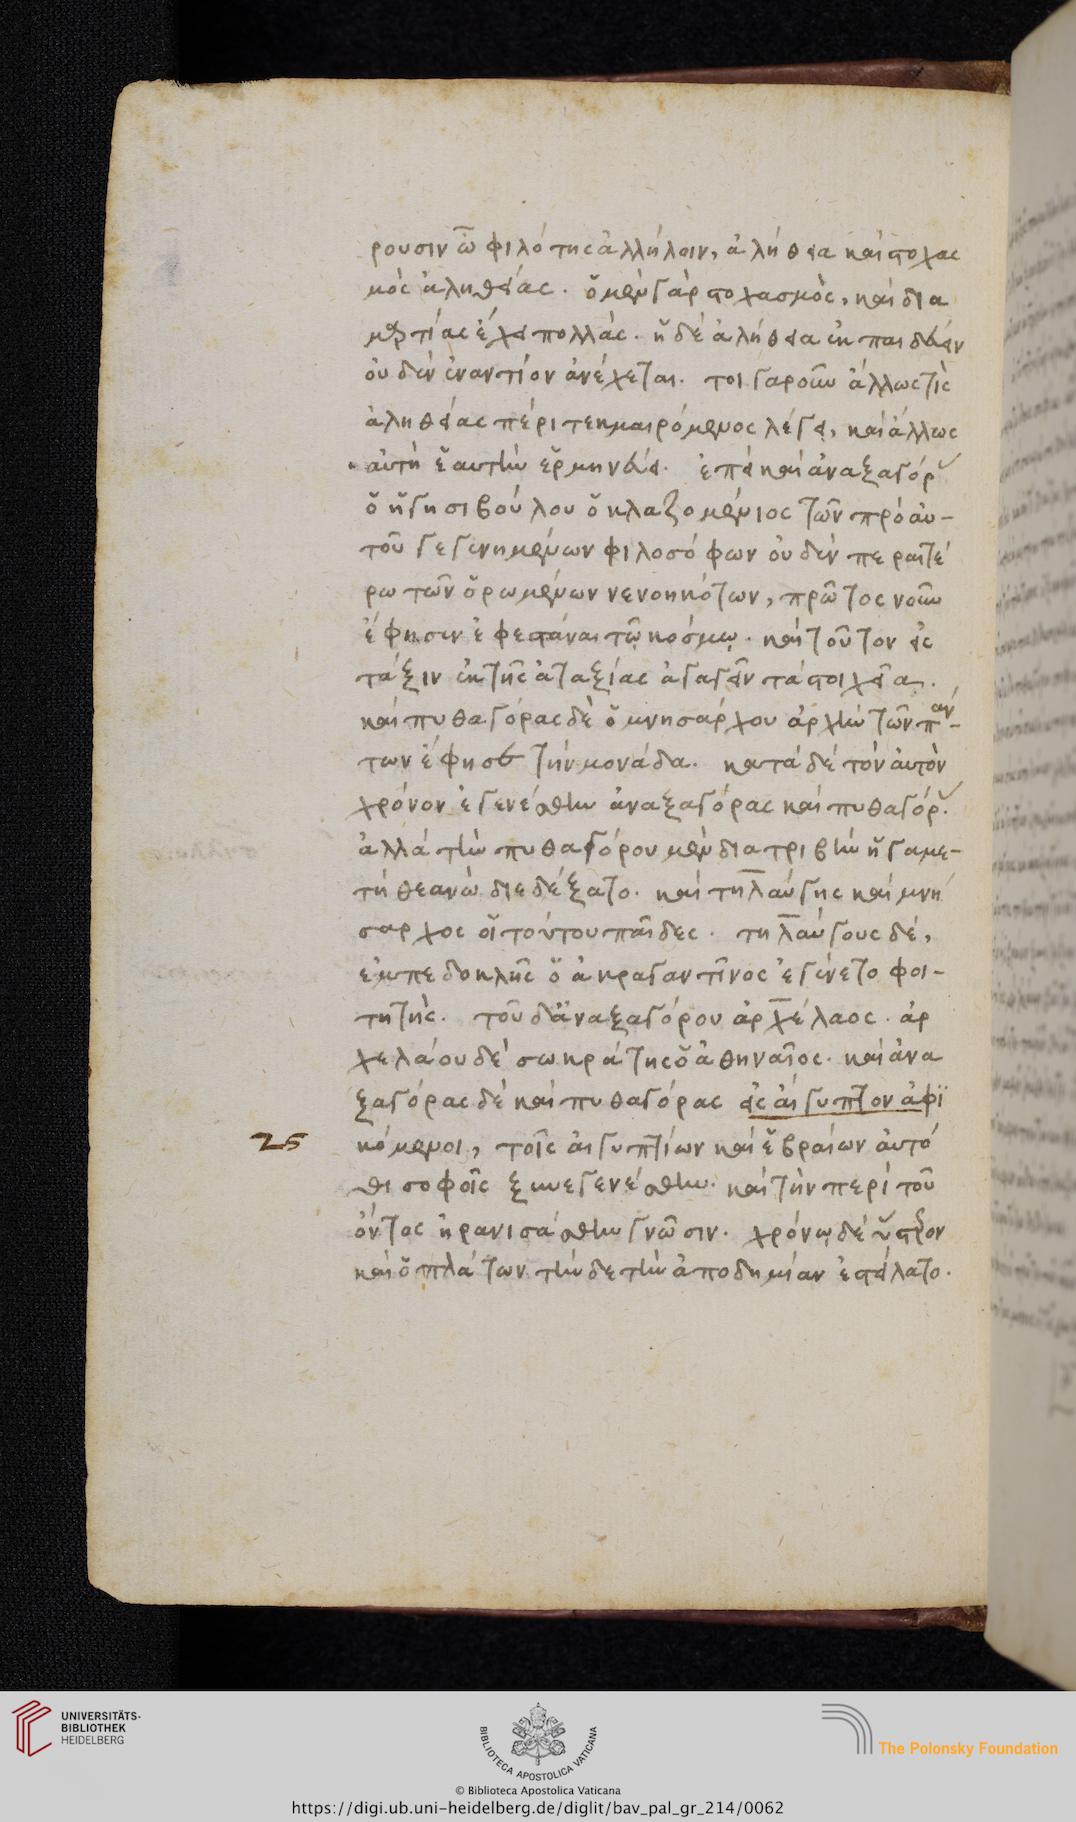 ρουσιν ὦ φιλότης ἀλλήλοιν, ἀλήθεια καὶ στοχασ
μὸς ἀληθείας. ὁ μὲν γὰρ στοχασμὸς, καὶ δια
μαρτίας ἔχει πολλὰς. ἡ δὲ ἀλήθεια ἐκ παιδιῶν
οὐδὲν ἐναντίον ἀνέχεται. τοιγαροῦν ἄλλως τὶς
ἀληθείας πέρι τεκμαιρόμενος λέγει, καὶ ἄλλως
αὐτὴ ἑαυτὴν ἑρμηνεύει. ἐπεὶ καὶ ἀναξαγόρας
ὁ ἡγησιβούλου ὁ κλαζομένιος τῶν πρὸ αὐ-
τοῦ γεγενημένων φιλοσόφων οὐδὲν περαιτέ
ρω τῶν ὁρωμένων νενοηκότων, πρῶτος νοῦν
ἔφησεν ἐφεστάναι τῷ κόσμῳ. καὶ τοῦτον εἰς
τάξιν ἐκ τῆς ἀταξίας ἀγαγεῖν τὰ στοιχεῖα.
καὶ πυθαγόρας δὲ ὁ μνησάρχου ἀρχὴν τῶν πάν-
των ἔφησε τὴν μονάδα. κατὰ δὲ τὸν αὐτὸν
χρόνον ἐγενέσθην ἀναξαγόρας καὶ πυθαγόρας.
ἀλλὰ τὴν πυθαγόρου μὲν διατριβὴν ἡ γαμε-
τὴ θεανὼ διεδέξατο. καὶ τηλαύγης καὶ μνή
σαρχος οἱ τούτου παῖδες. τηλαύγους δέ,
ἐμπεδοκλῆς ὁ ἀκραγαντῖνος ἐγένετο φοι-
τητής. τοῦ δ' ἀναξαγόρου ἀρχέλαος. ἀρ
χελάου δὲ σωκράτης ὁ ἀθηναῖος. καὶ ἀνα
ξαγόρας δὲ καὶ πυθαγόρας εἰς αἴγυπτον ἀφϊ
25 κόμενοι, τοῖς αἰγυπτίων καὶ ἑβραίων αὐτό
θι σοφοῖς ξυνεγενέσθην. καὶ τὴν περὶ τοῦ
ὄντος ἠρανισάσθην γνῶσιν. χρόνῳ δὲ ὕστερον
καὶ ὁ πλάτων τήνδε τὴν ἀποδημίαν ἐστείλατο.
UNIVERSITÄTS-
BIBLIOTHEK
HEIDELBERG
BIBLIOTECA APOSTOLICA VATICANA
The Polonsky Foundation
© Biblioteca Apostolica Vaticana
https://digi.ub.uni-heidelberg.de/diglit/bav_pal_gr_214/0062